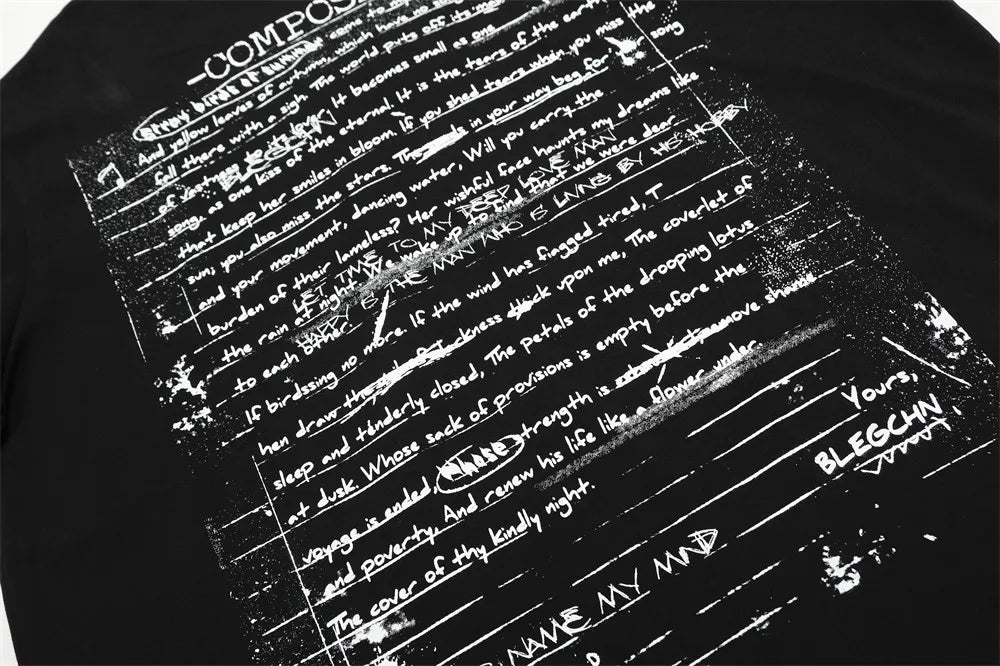 -COMPOS
stray birds of summer come to
And yellow leaves of autumn, which have no
fall there with a sigh. The world puts off its
of vastness to its lover. It becomes small as one
song, as one kiss of the eternal. It is the tears of the earth
that keep her smiles in bloom. If you shed tears when you miss the
sun, you also miss the stars. The in your way beg for song
and your movement, dancing water, Will you carry the
burden of their lameless? Her wishful face haunts my dreams like
the rain at night. We wake up to find that we were dear
to each other.
LET TIME TO MY DEEP LOVE MAN
HAPPY IS THE MAN WHO IS LIVING BY HIS HOBBY
If birdssing no more. If the wind has flagged tired, T
hen draw the of darkness thick upon me, The coverlet of
sleep and tenderly closed, The petals of the drooping lotus
at dusk. Whose sack of provisions is empty before the
voyage is ended, Whose strength is remove shame
and poverty, And renew his life like a flower under.
The cover of thy kindly night.
Yours,
BLEGCHN
NAME MY MIND